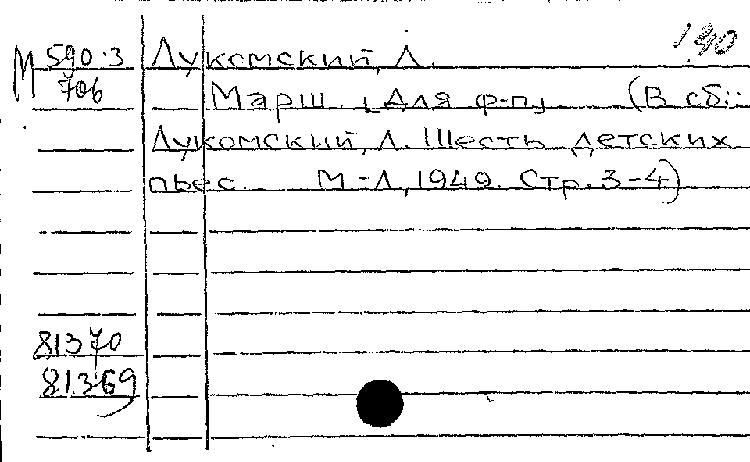 190
М 590.3 Лукомский, Л.
706 Марш. [Для ф-п] (В сб.:
Лукомский, Л. Шесть детских
пьес. М-Л, 1949. Стр. 3-4)
81370
81369